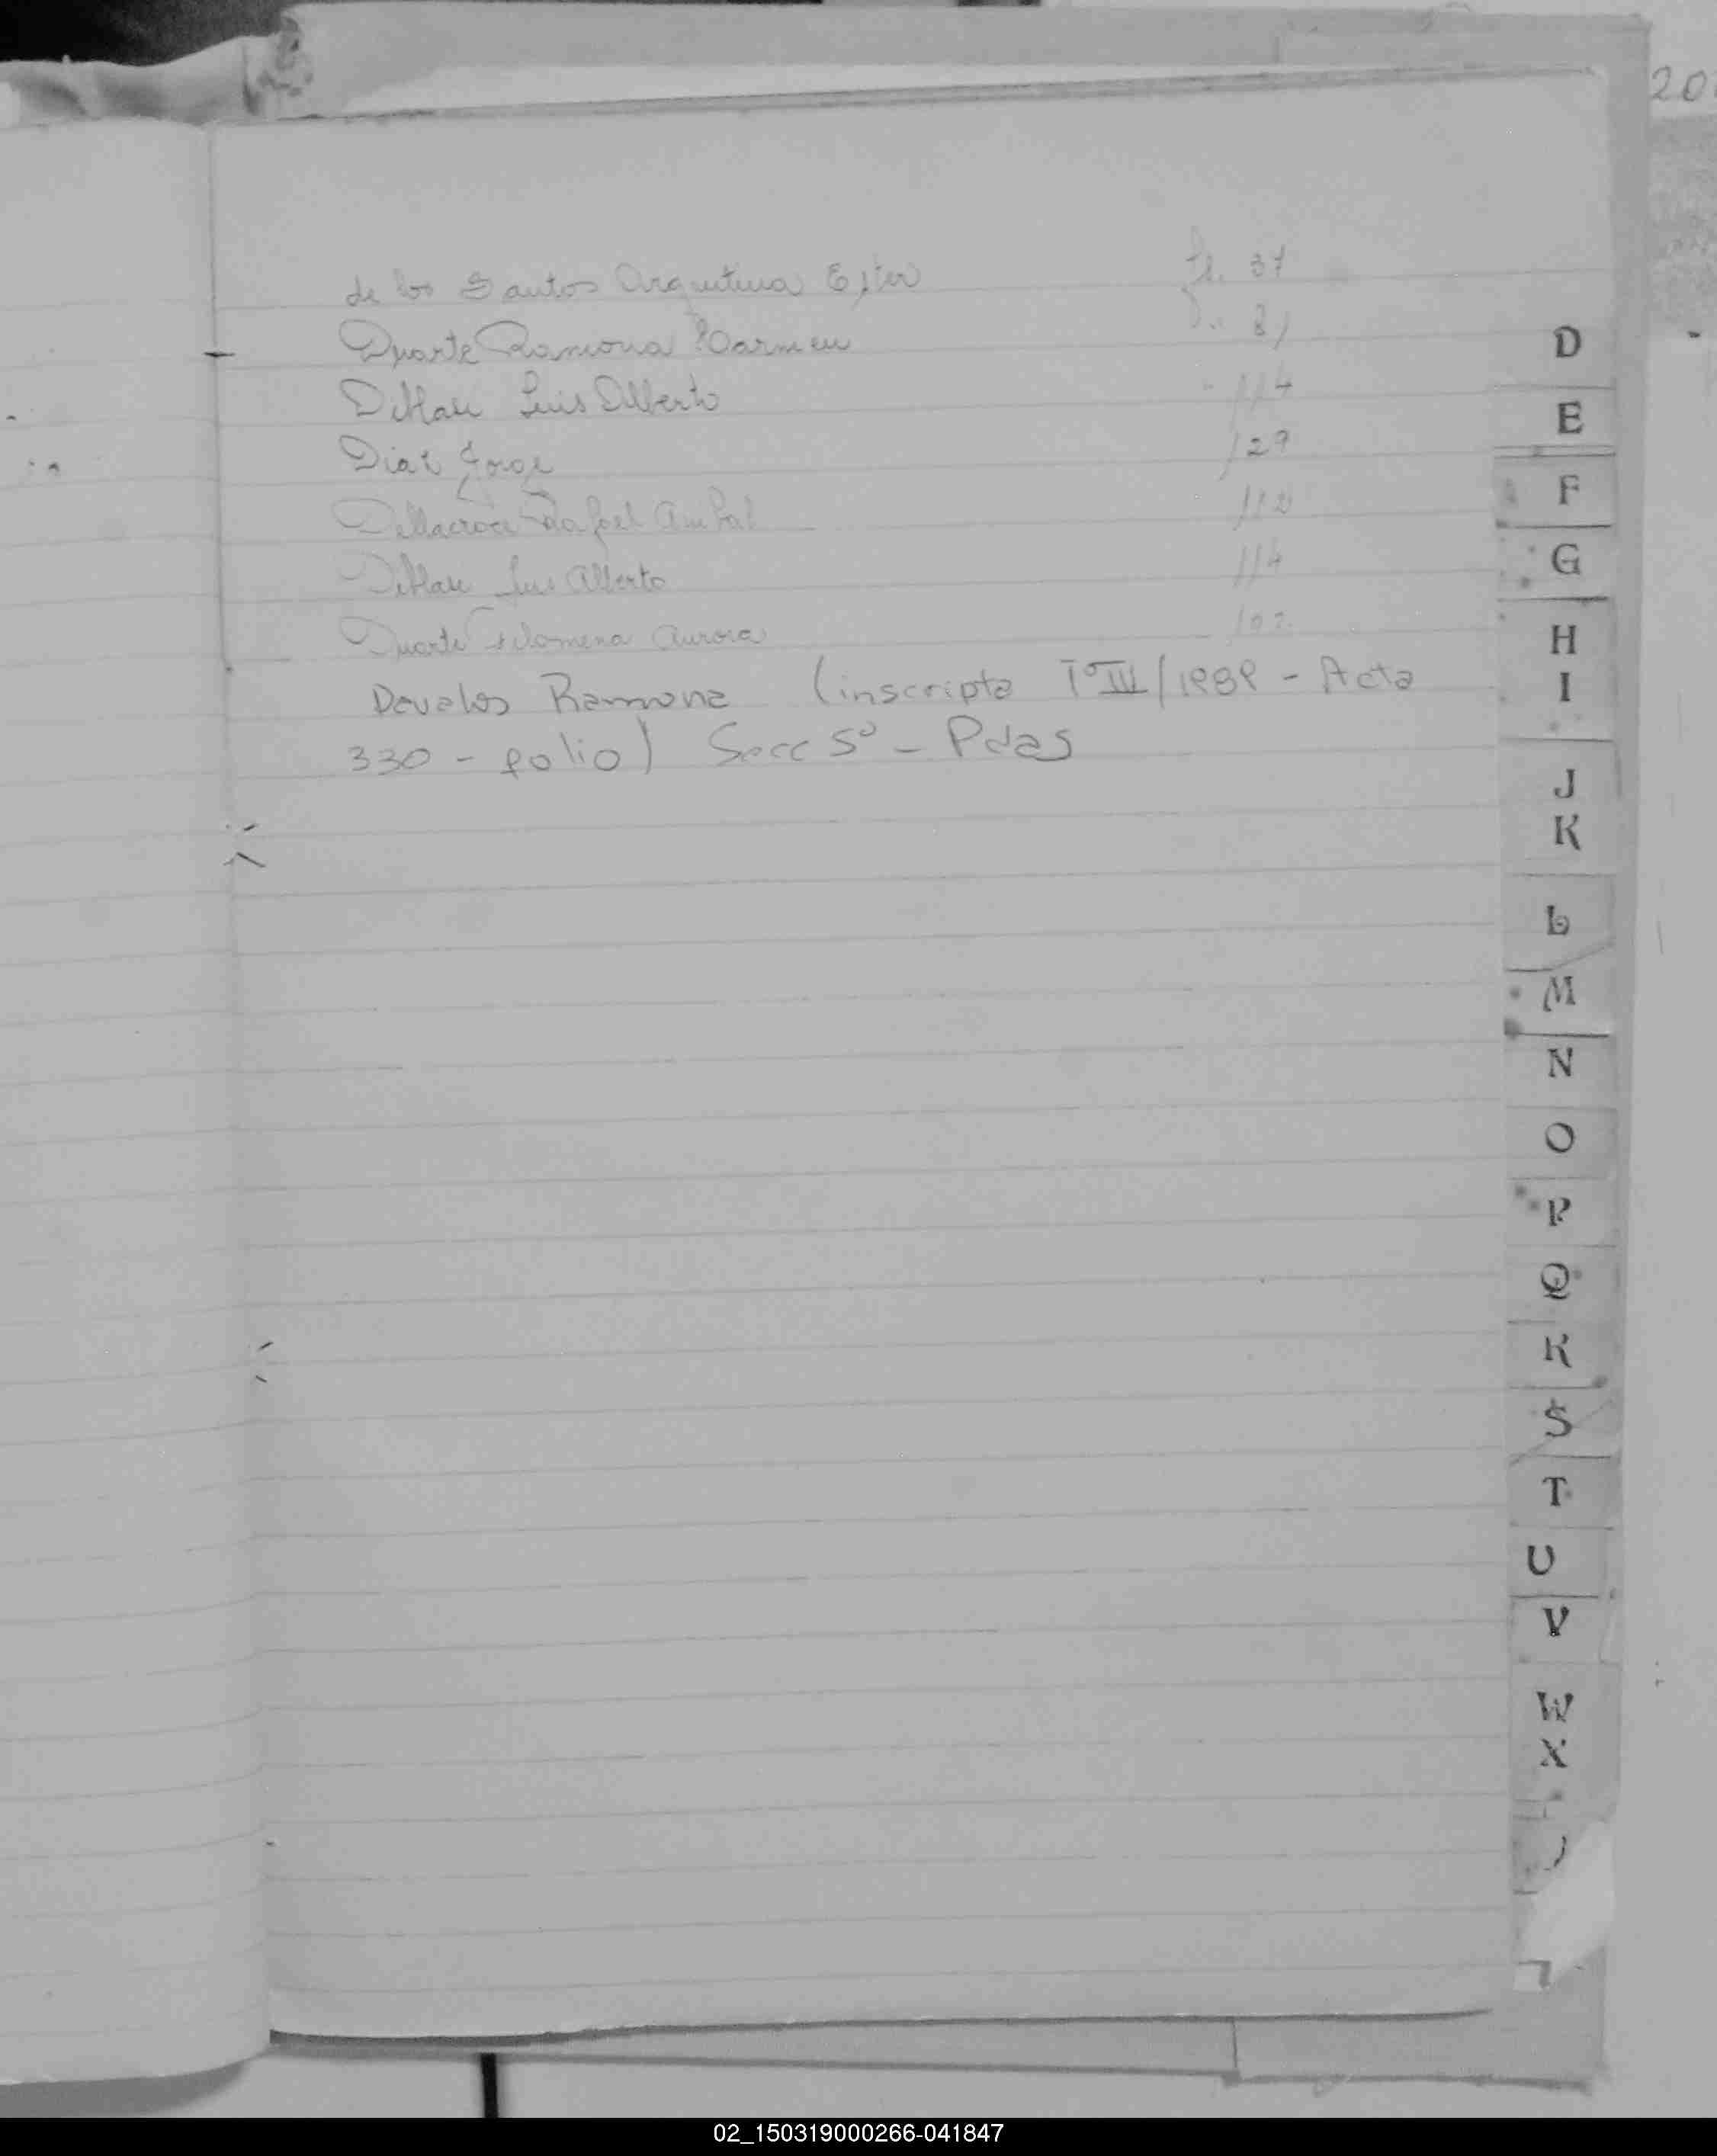 20
de los Santos Argentina Ester fl. 37
Duarte Ramona Carmen 81
Luis Alberto 114
Diaz Jorge 129
Dellacroce Rafael Anibal 112
Luis Alberto 114
Duarte Filomena Aurora 102
Davalos Ramona (inscripta T° III/1989 - Acta
330 - folio) Secc 5° - Pdas
D
E
F
G
H
I
J
K
L
M
N
O
P
Q
R
S
T
U
V
W
X
02_150319000266-041847